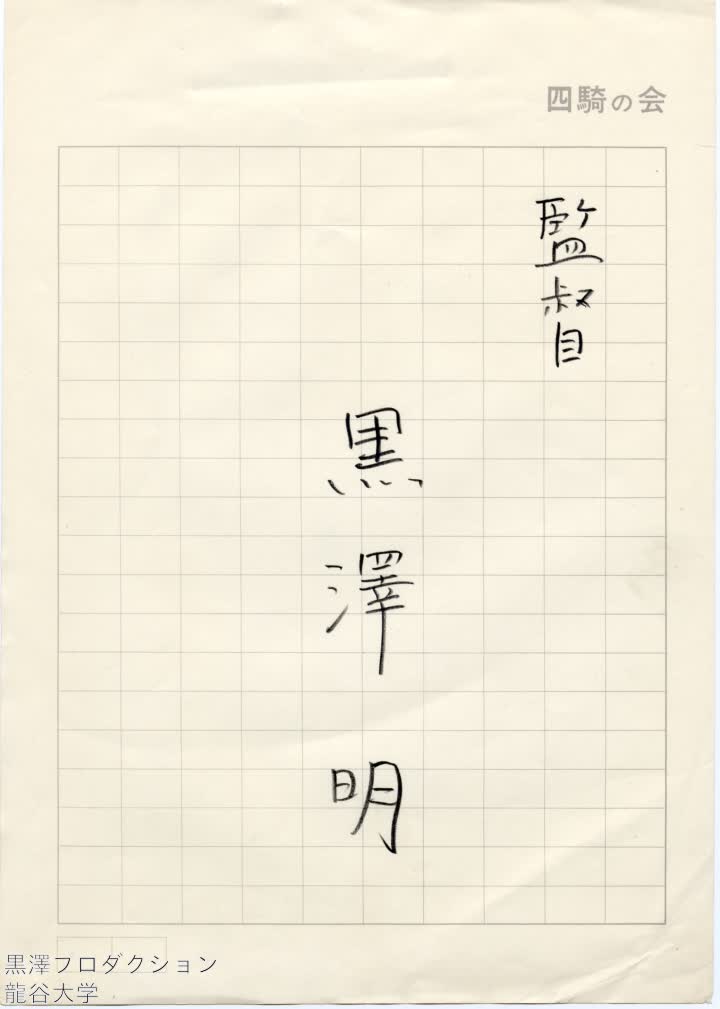 四騎の会
監督
黒澤明
黒澤フロダクション
龍谷大学